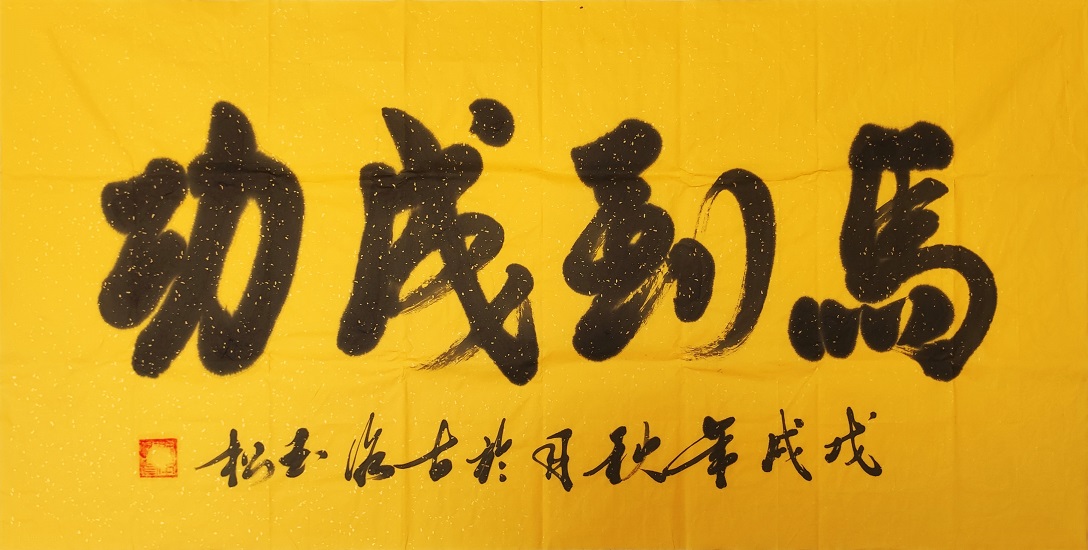 馬到成功
戊戌年秋月於古洛玉松